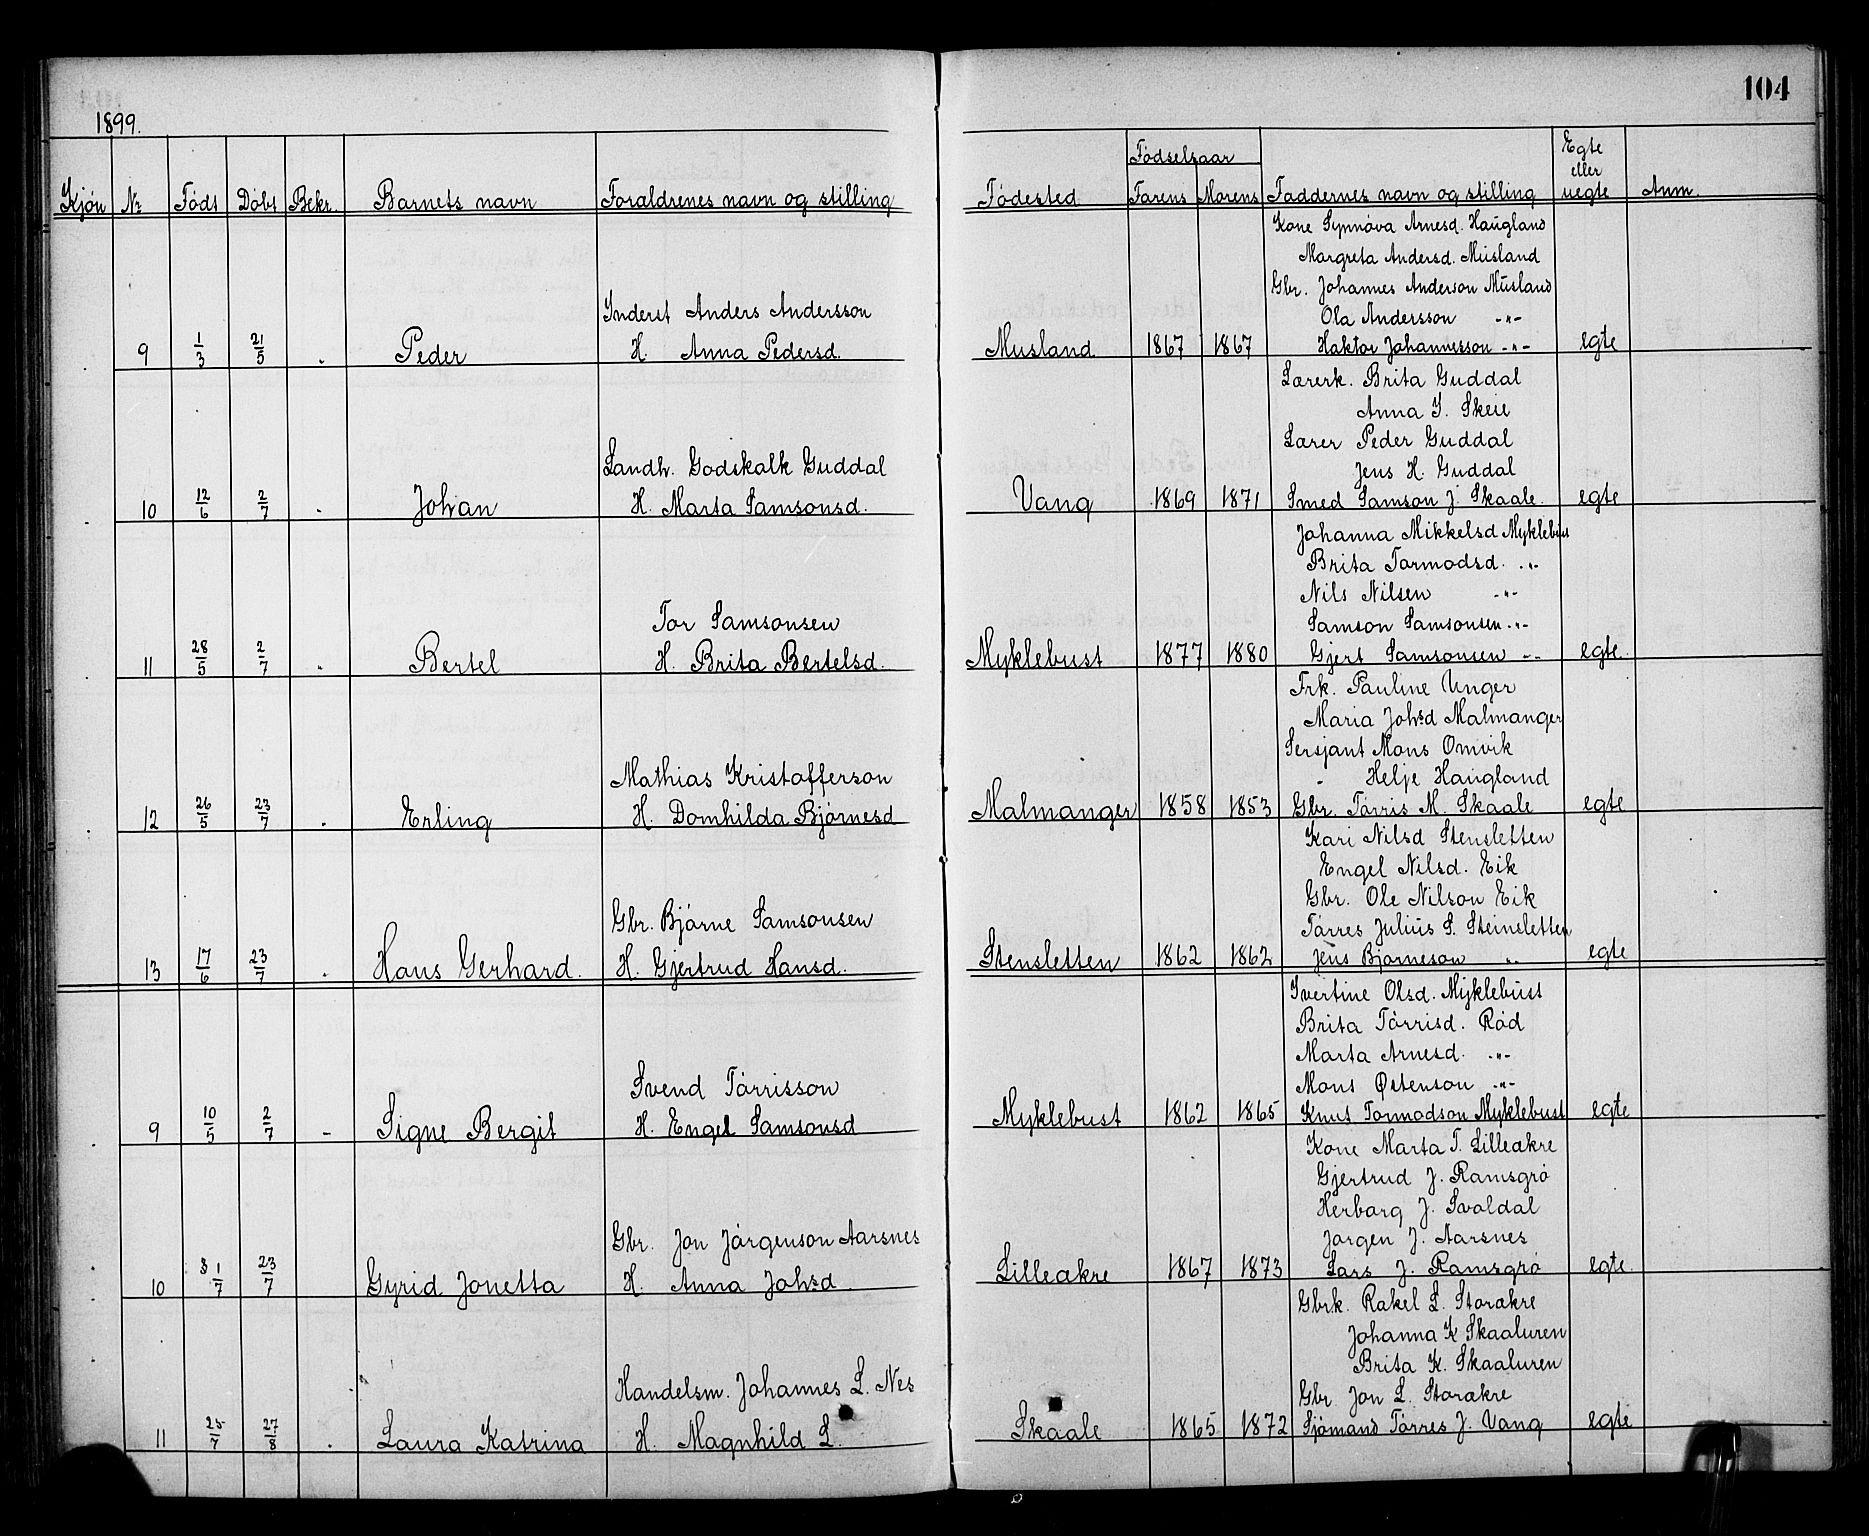 104
1899.
Kjøn Nr Født Døbt Bekr. Barnets navn Foraldrenes navn og stilling Fødested Fødselsaar Farens Morens Faddernes navn og stilling Egte eller uegte Anm.
Kone Synnøva Arnesd. Haugland
Margreta Andersd. Musland
Gbr. Johannes Anderson Musland
Inderst Anders Andersson
Ola Andersson -"-
9 1/3 21/5 . Peder H. Anna Pedersd. Musland 1867 1867 Haktor Johannesson -"- egte
Lærerk. Brita Guddal
Anna I. Skeie
Lærer Peder Guddal
Landh. Godskalk Guddal
Jens H. Guddal
10 12/6 2/7 . Johan H. Marta Samsonsd. Vang 1869 1871 Smed Samson J. Skaale. egte
Johanna Mikkelsd Myklebust
Brita Tormodsd. -"-
Nils Nilsen -"-
Tor Samsonsen
Samson Samsonsen -"-
11 28/5 2/7 . Bertel H. Brita Bertelsd. Myklebust 1877 1880 Gjert Samsonsen -"- egte.
Frk. Pauline Unger
Maria Johsd Malmanger
Sersjant Mons Omvik
Mathias Kristofferson
- Helje Haugland
12 26/5 23/7 . Erling H. Domhilda Bjørnesd Malmanger 1858 1853 Gbr. Tørris M. Skaale egte
Kari Nilsd Stensletten
Engel Nilsd. Eik
Gbr. Ole Nilson Eik
Gbr. Bjørne Samsonsen
Tørres Julius S. Steinsletten
13 17/6 23/7 . Hans Gerhard. H. Gjertrud Hansd. Stensletten 1862 1862 Jens Bjørneson -"- egte
Ivertine Olsd. Myklebust
Brita Tørrisd. Rød
Marta Arnesd. -"-
Svend Tørrisson
Mons Østenson -"-
9 10/5 2/7 - Signe Bergit H. Engel Samsonsd Myklebust 1862 1865 Knut Tormodson Myklebust egte
Kone Marta T. Lilleakre
Gjertrud J. Ramsgrø
Herborg J. Svoldal
Gbr. Jon Jørgenson Aarsnes
Jørgen J. Aarsnes
10 1/7 23/7 Gyrid Jonetta H. Anna Johsd. Lilleakre 1867 1873 Lars J. Ramsgrø egte.
Gbrk. Rakel L. Storakre
Johanna K Skaaluren
Brita K. Skaaluren
Handelsm. Johannes L. Nes
Gbr Jon L. Storakre
11 25/7 27/8 . Laura Katrina H. Magnhild L. Skaale 1865 1872 Sjømand Tørres J. Vang egte